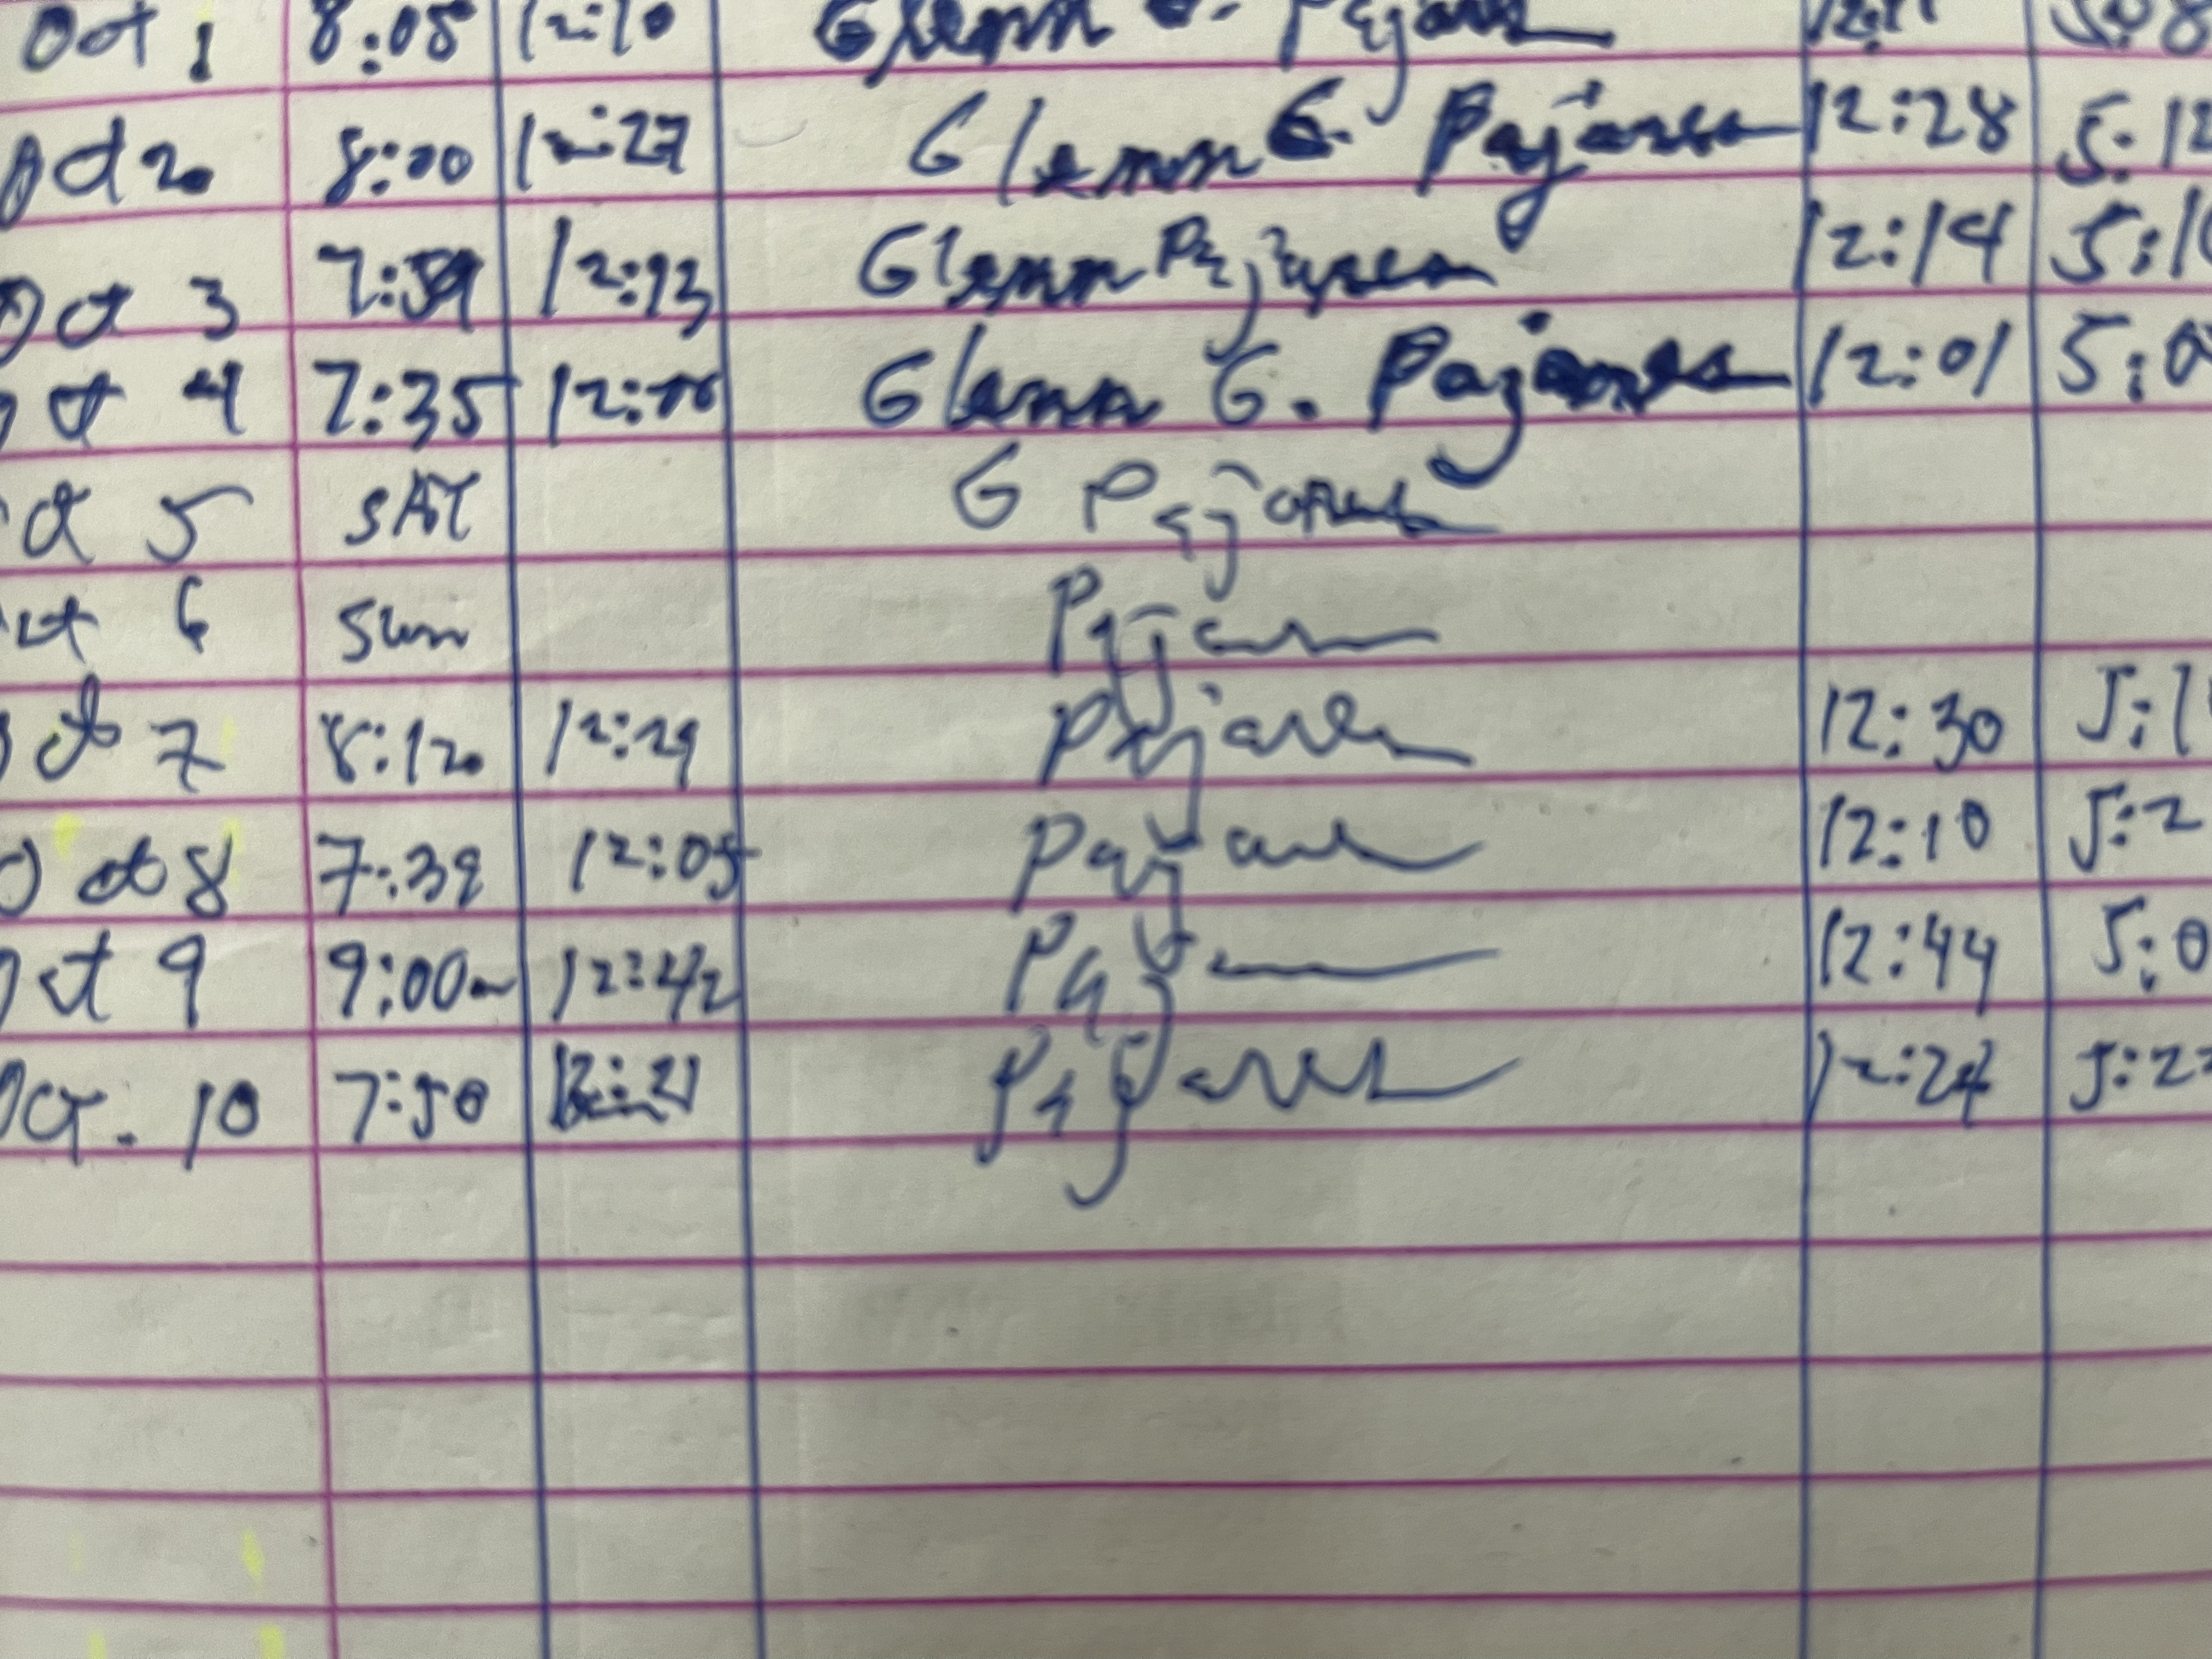 Oct 1 8:05 12:10 Glenn G. Pajares
Oct 2 8:00 12:27 Glenn G. Pajares 12:28 5:12
Oct 3 7:59 12:13 Glenn Pajares 12:14
Oct 4 7:35 Glenn G. Pajares 12:01
Oct 5 SAT G Pajares
Oct 6 Sun Pajares
Oct 7 8:12 12:29 Pajares 12:30
Oct 8 7:39 12:05 Pajares 12:10
Oct 9 9:00 12:42 12:44
Oct. 10 7:50 12:21 Pajares 12:24